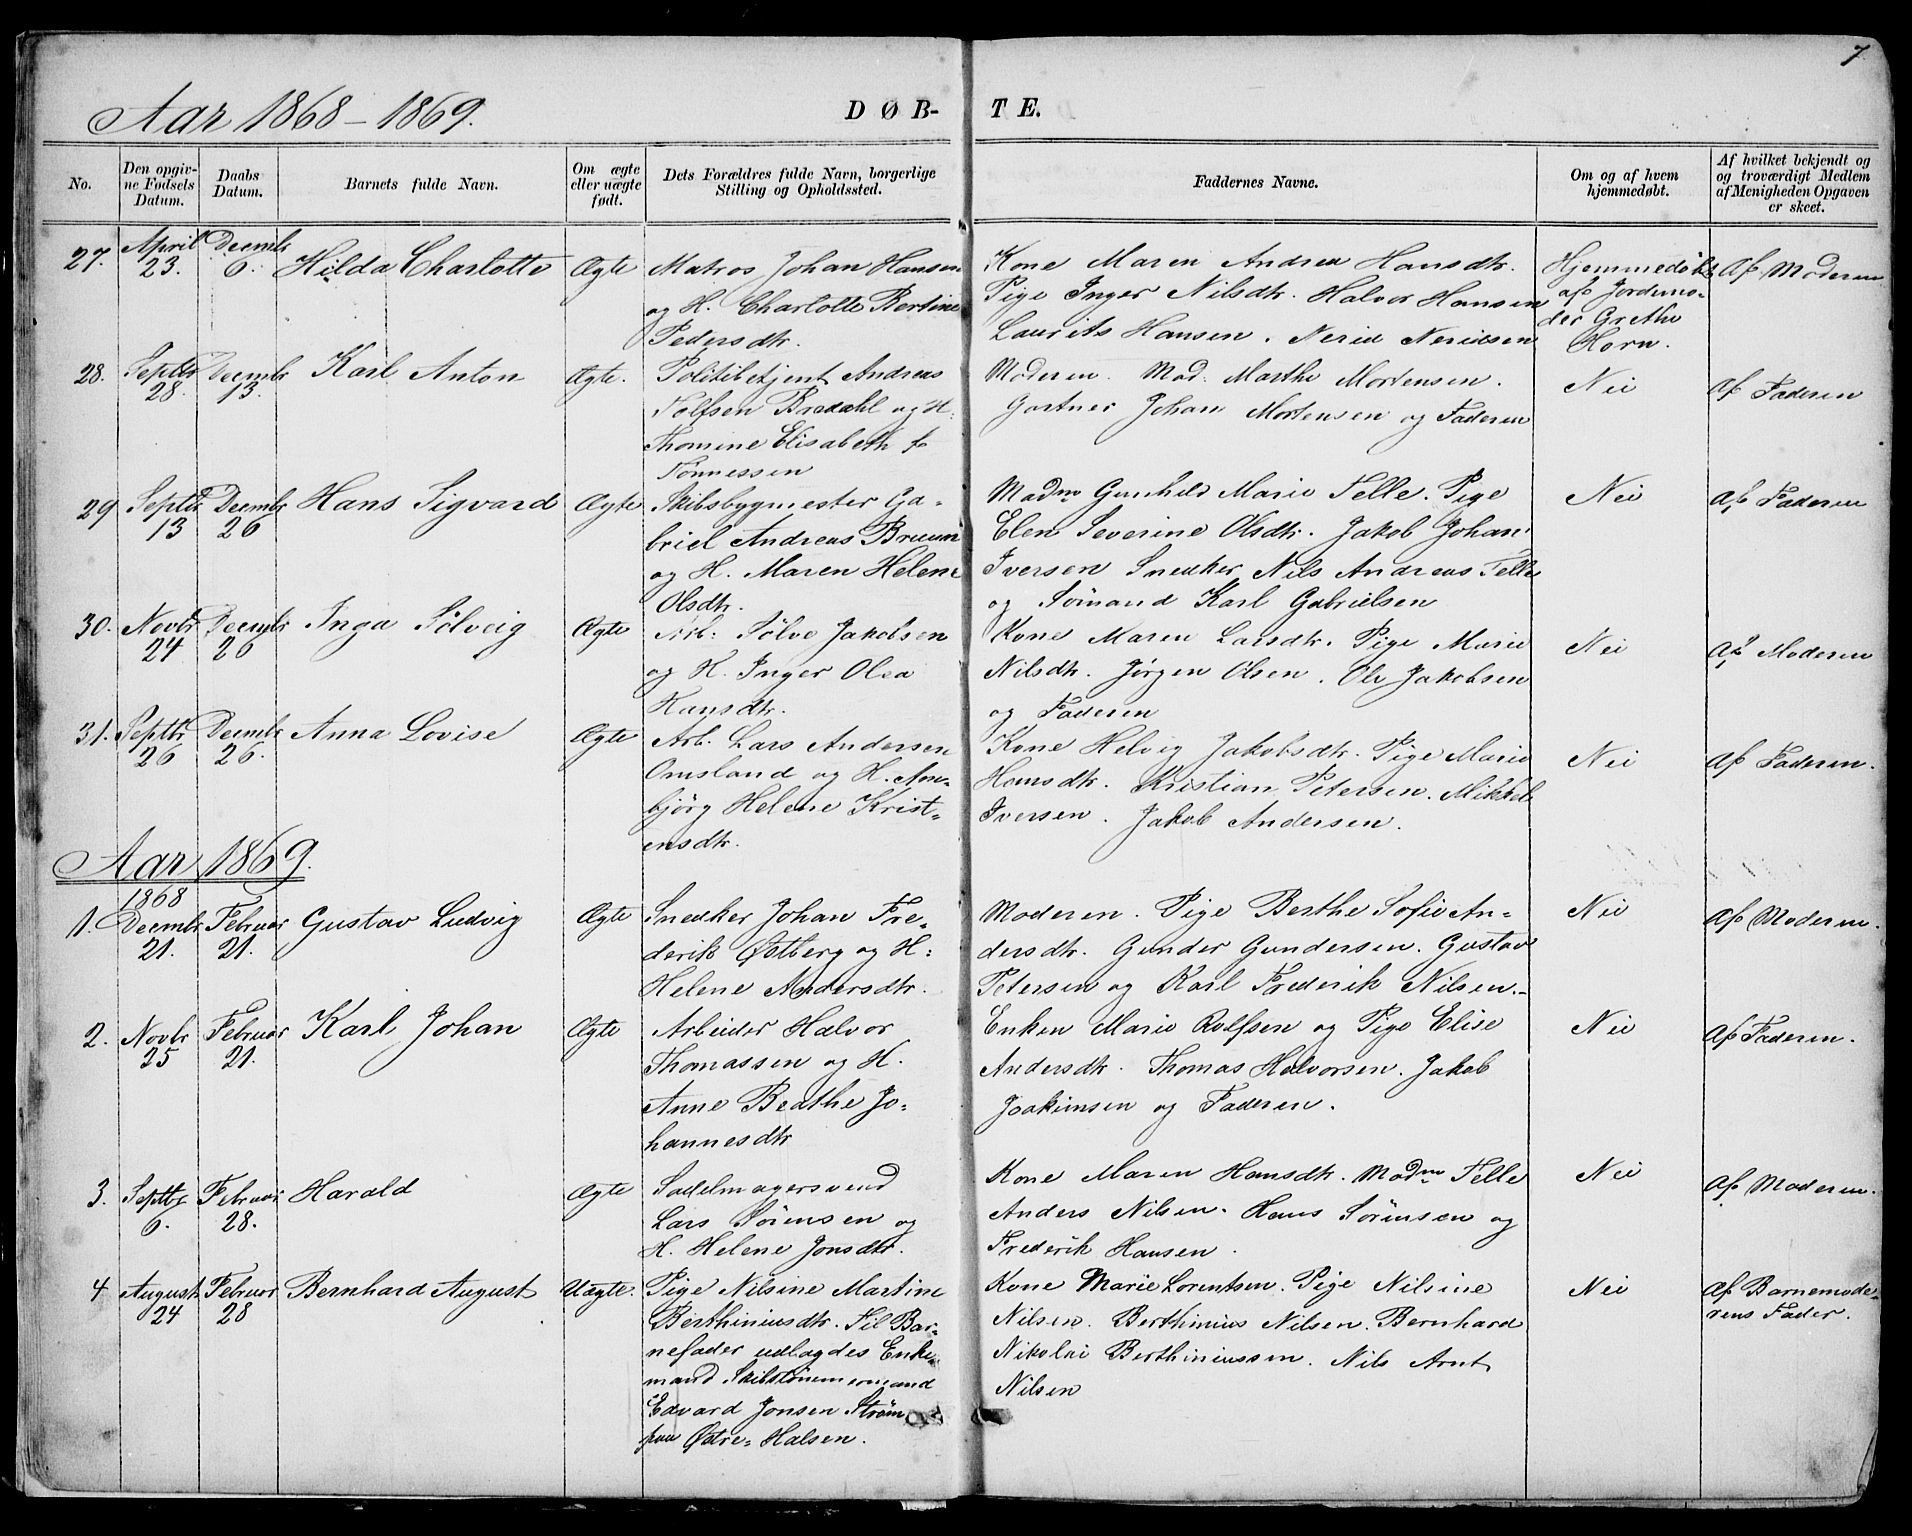 7
Aar 1868-1869.
DØB-TE.
No.
Den opgiv-
ne Fødsels
Datum.
Daabs
Datum.
Barnets fulde Navn.
Om ægte
eller uægte
født.
Dets Forældres fulde Navn, borgerlige
Stilling og Opholdssted.
Faddernes Navne.
Om og af hvem
hjemmedøbt.
Af hvilket bekjendt og
og troværdigt Medlem
af Menigheden Opgaven
er skeet.
27. April 23. Decmbr 6. Hilda Charlotte Ægte
Matros Johan Hansen
og H. Charlotte Bertine
Pedersdtr.
Kone Maren Andrea Hansdtr.
Pige Inger Nilsdtr. Halvor Hansen
Laurits Hansen. Neriel Nerielsen
Hjemmedøbt
af Jordemo-
der Grethe
Horn.
Af Moderen
28. Septbr 28. Decmbr 13. Karl Anton Ægte.
Politibetjent Andreas
Tolfsen Bredahl og H.
Thomine Elisabeth f.
Tønnessen
Moderen. Mad. Marthe Mortensen.
Gartner Johan Mortensen og Faderen
Nei
Af Faderen
29 Septbr 13 Decmbr 26 Hans Sigvard Ægte
Skibsbygmester Ga-
briel Andreas Bruun
og H. Maren Helene
Olsdtr.
Madm Gunhild Marie Telle. Pige
Elen Severine Olsdtr. Jakob Johan
Iversen Snedker Nils Andreas Telle
og Sømand Karl Gabrielsen
Nei
Af Faderen
30. Novbr 24 Decmbr 26 Inga Sølveig Ægte
Arb: Sølve Jakobsen
og H. Inger Olea
Hansdtr.
Kone Maren Larsdtr. Pige Marie
Nilsdtr. Jørgen Olsen. Ole Jakobsen
og Faderen
Nei
Af Moderen
31. Septbr 26 Decmbr 26. Anna Lovise Ægte
Arb. Lars Andersen
Omsland og H. Ann-
bjørg Helene Krist-
ensdtr.
Kone Helvig Jakobsdtr. Pige Marie
Hansdtr. Kristian Petersen. Mikkel
Iversen. Jakob Andersen.
Nei
Af Faderen.
Aar 1869.
1868
1. Decmbr 21. Februar 21. Gustav Ludvig Ægte
Snedker Johan Fre-
derik Østberg og H:
Helene Andersdtr.
Moderen. Pige Berthe Sofie An-
dersdtr. Gunder Gundersen. Gustav
Petersen og Karl Frederik Nilsen.
Nei
Af Moderen.
2. Novbr 25 Februar 21. Karl Johan Ægte
Arbeider Halvor
Thomassen og H.
Anne Beathe Jo-
hannesdtr
Enken Marie Rolfsen og Pige Elise
Andersdtr. Thomas Halvorsen. Jakob
Joakimsen og Faderen.
Nei
Af Faderen.
3. Septbr 6. Februar 28. Harald Ægte
Sadelmagersvend
Lars Sørensen og
H. Helene Jonsdtr.
Kone Maren Hansdtr. Madm Telle
Anders Nilsen. Hans Sørensen og
Frederik Hansen.
Nei
Af Moderen.
4 August 24 Februar 28 Bernhard August Uægte.
Pige Nilsine Martine
Berthiniusdtr. Til Bar-
nefader udlagdes Enke-
mand Skibstømmermand
Edvard Jonsen Strøm
paa Østre-Halsen.
Kone Marie Lorentsen. Pige Nilsine
Nilsen. Berthinius Nilsen. Bernhard
Nikolai Berthiniussen. Nils Arnt
Nilsen
Nei
Af Barnemode-
rens Fader.